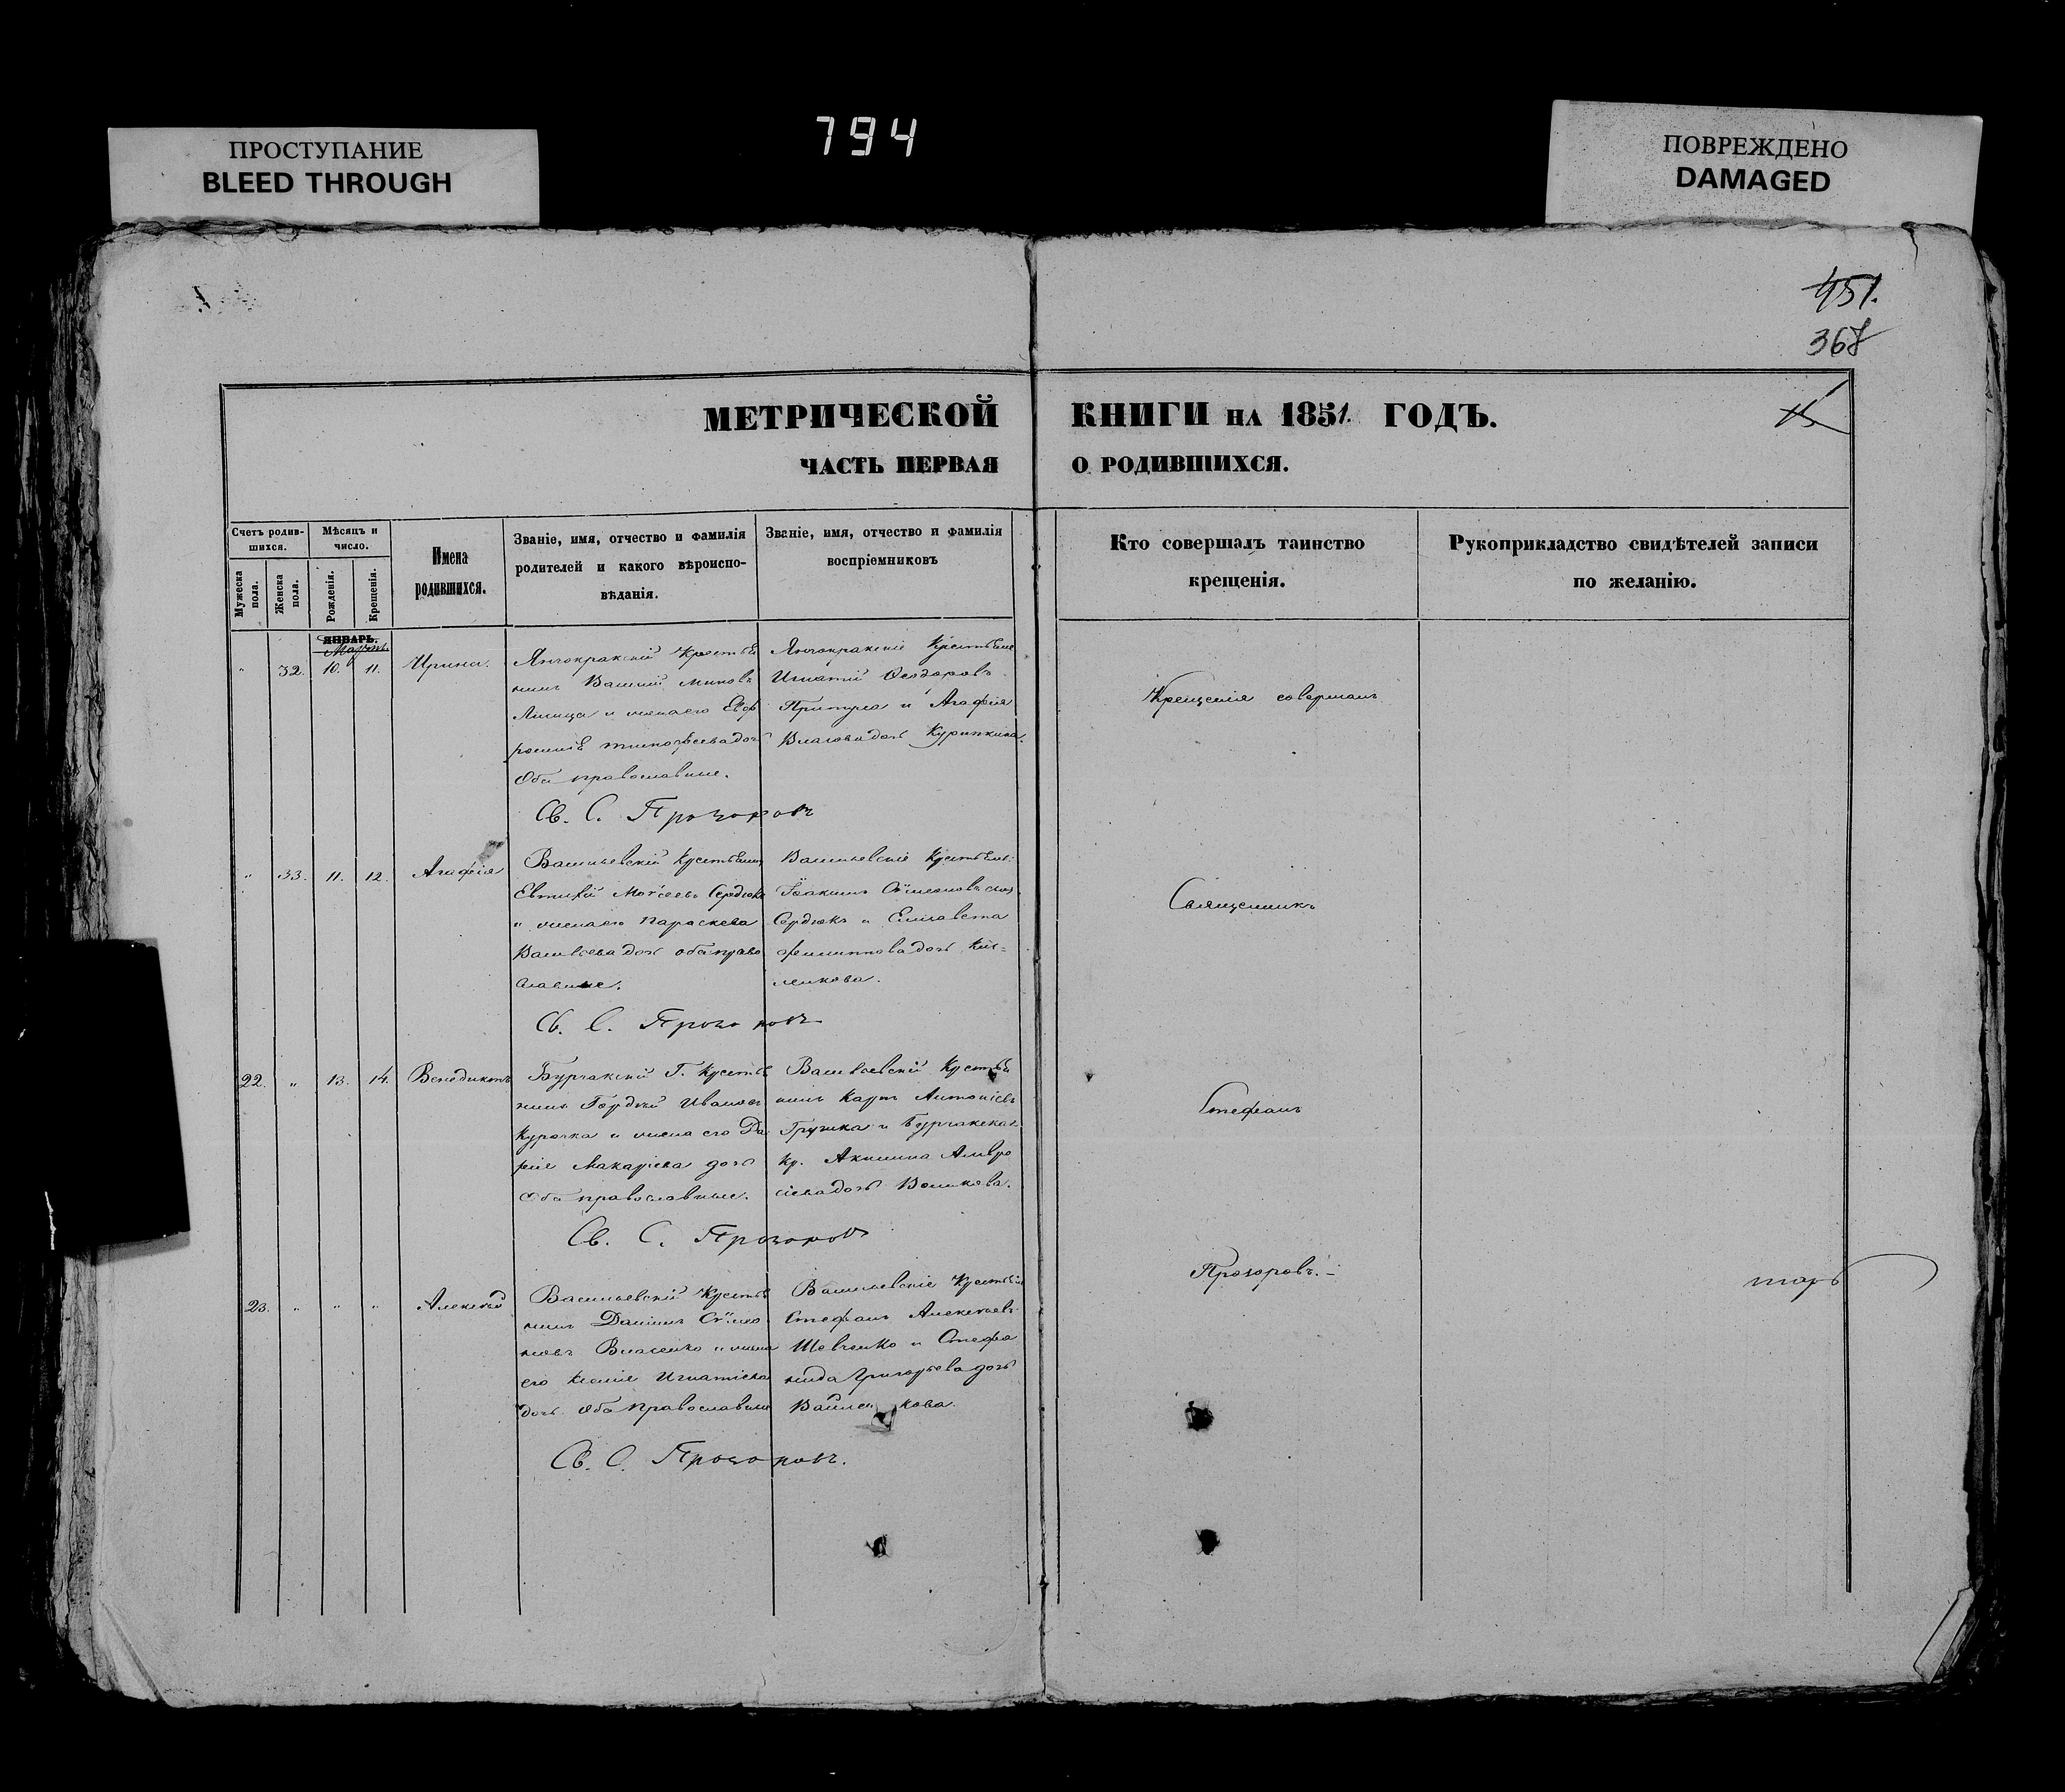 ПРОСТУПАНИЕ
BLEED THROUGH
794
ПОВРЕЖДЕНО
DAMAGED
451.
368
МЕТРИЧЕСКОЙ КНИГИ НА 1851. ГОДЪ.
ЧАСТЬ ПЕРВАЯ О РОДИВШИХСЯ.
Счетъ родив-
шихся.
Мужеска пола.
Женска пола.
Мѣсяцъ и
число.
Рожденія.
Крещенія.
Имена
родившихся.
Званіе, имя, отчество и фамилія
родителей и какого вѣроиспо-
вѣданія.
Званіе, имя, отчество и фамилія
воспріемниковъ
Кто совершалъ таинство
крещенія.
Рукоприкладство свидѣтелей записи
по желанію.
ЯНВАРЬ.
Мартъ.
" 32. 10. 11. Ирина.
Янчокракскій Крестья
нинъ Василій
и жена его Евф
росинія Тимофеева дочь
Оба православные.
Св. С. Прозоровъ
Янчокракскіе Крестьяне
Игнатій Феодоровъ
Притула и Агафія
Власова дочь
" 33. 11. 12. Агафія
Васильевскій Крестьянинъ
Евтихій Моѵсеевъ Сердюкъ
и жена его Параскева
Васильева дочь оба право
славные.
Св. С. Прозоровъ
Васильевскіе Крестьяне:
Іоакимъ Сѵмеоновъ сынъ
Сердюкъ и Елисавета
Филиппова дочь
22. " 13. 14. Венедиктъ
Бурчакскій Г. Крестья
нинъ Гордій Ивановъ
Курочка и жена его Да
рія Макаріева дочь
Оба православные.
Св. С. Прозоровъ
Васильевскій Крестья
нинъ Карпъ Антоніевъ
и Бурчакская
Кр. Акилина Амвро
сіева дочь Воликова.
23. " " " Алексѣй
Васильевскій Крестья
нинъ Даніилъ Сѵмео
новъ Власенко и жена
его Ксенія Игнатіева
дочь Оба православные
Св. С. Прозоровъ.
Васильевскіе Крестьяне
Стефанъ Алексѣевъ
Шевченко и Стефа
нида Григорьева дочь
Крещенія совершалъ
Священникъ
Стефанъ
Прозоровъ.